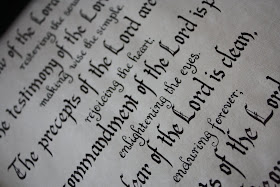 of the Lord
the
he testimony of the Lord
making wise the simple.
The precepts of the Lord are
rejoicing the heart;
commandment of the Lord is p
enlightening the eyes.
ear of the Lord is clean,
enduring forever;
ts of the Lord